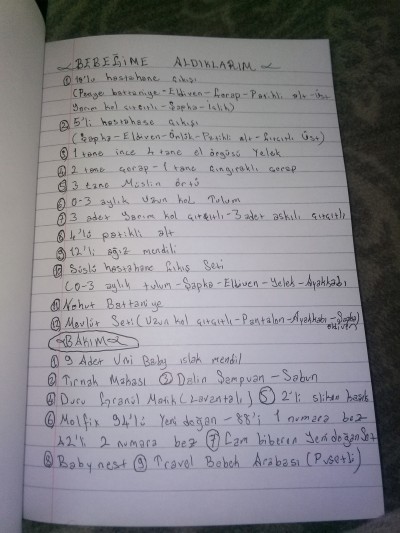 BEBEĞİME ALDIKLARIM
① 10'lu hastahane çıkışı
(Penye battaniye-Eldiven-Çorap-Patikli alt-üst
Yarım kol çıtçıtlı-Şapka-İçlik)
② 5'li hastahane çıkışı
(Şapka-Eldiven-Önlük-Patikli alt-Çıtçıtlı Üst)
③ 1 tane ince 4 tane el örgüsü Yelek
④ 2 tane çorap-1 tane çıngıraklı çorap
⑤ 3 tane Müslin örtü
⑥ 0-3 aylık uzun kol Tulum
⑦ 3 adet yarım kol çıtçıtlı-3 adet askılı çıtçıtlı
⑧ 4'lü patikli alt
⑨ 12'li ağız mendili
⑩ Süslü hastahane Çıkış Seti
(0-3 aylık tulum-Şapka-Eldiven-Yelek-Ayakkabı
⑪ Nohut Battaniye
⑫ Mevlüt Seti (Uzun kol çıtçıtlı-Pantalon-Ayakkabı-Şapka
eldiven)
BAKIM
① 9 Adet Uni Baby ıslak mendil
② Tırnak Makası ③ Dalin Şampuan-Sabun
④ Duru Granül Matik (Lavantalı) ⑤ 2'li silikon
⑥ Molfix 94'lü Yeni doğan-88'i 1 numara bez
42'li 2 numara bez ⑦ Cam biberon Yeni doğan Set
⑧ Babynest ⑨ Travel Bebek Arabası (Pusetli)